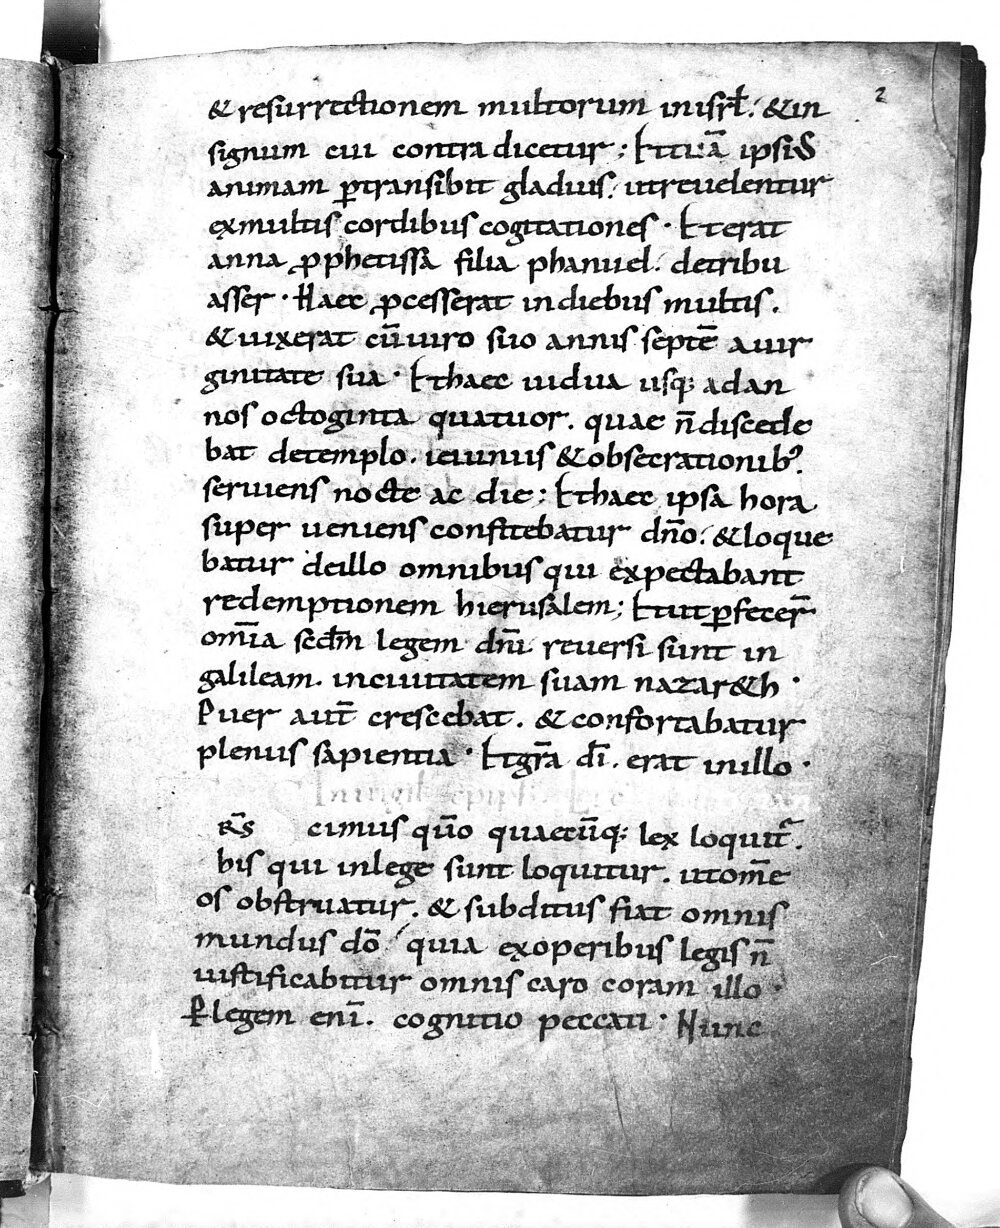 2
& resurrectionem multorum inisrł. &in
signum cui contra dicetur; Ettuā ipsiƲ
animam ꝑtransibit gladius. utreuelentur
exmultis cordibus cogitationes · Et erat
anna ꝓphetissā filia phanuel. detribu
asser · Haec ꝓcesserat indiebus multis.
& uixerat cūuiro suo annis septē auir
ginitate sua · Ethaec uidua usq; adan
nos octoginta quatuor. quae n̄discede
bat detemplo. ieiuniis &obsecrationib;
seruiens nocte ac die; Ethaec ipsa hora
super ueniens confitebatur dño. &loque
batur deillo omnibus qui expectabant
redemptionem hierusalem; Etut ꝑfecer̄
om̄ia secdm̄ legem dn̄i reuersi sunt in
galileam. inciuitatem suam nazar&h ·
Puer aut̄ crescebat. & confortabatur
plenus sapientia · Etgr̄a dī. erat inillo ·
In uigił
R̄S cimus qūo quaecūq; lex loquit̄.
bis qui inlege sunt loquitur. utom̄e
os obstruatur. & subditus fiat omnis
mundus dō quia exoperibus legis n̄
iustificabitur omnis caro coram illo ·
Ꝑlegem enī. cognitio peccati · Nunc